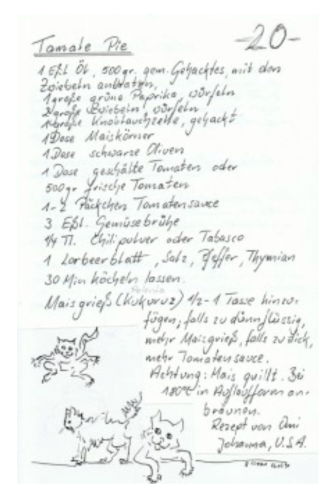 Tamale Pie
-20-
1 Eßl Öl, 500gr. gem. Gehacktes, mit den
Zwiebeln anbraten,
1 große grüne Paprika, würfeln
2 große Zwiebeln, würfeln
1 große Knoblauchzehe, gehackt
1 Dose Maiskörner
1 Dose schwarze Oliven
1 Dose geschälte Tomaten oder
500gr frische Tomaten
1-2 Päckchen Tomatensauce
3 Eßl. Gemüsebrühe
1/4 Tl. Chilipulver oder Tabasco
1 Lorbeerblatt, Salz, Pfeffer, Thymian
30 Min köcheln lassen.
Polenta
Maisgrieß (Kukuruz) 1/2-1 Tasse hinzu-
fügen, falls zu dünnflüssig,
mehr Maisgrieß, falls zu dick,
mehr Tomatensauce.
Achtung: Mais quillt. Bei
180°C in Auflaufform an-
bräunen.
Rezept von Omi
Johanna, U.S.A.